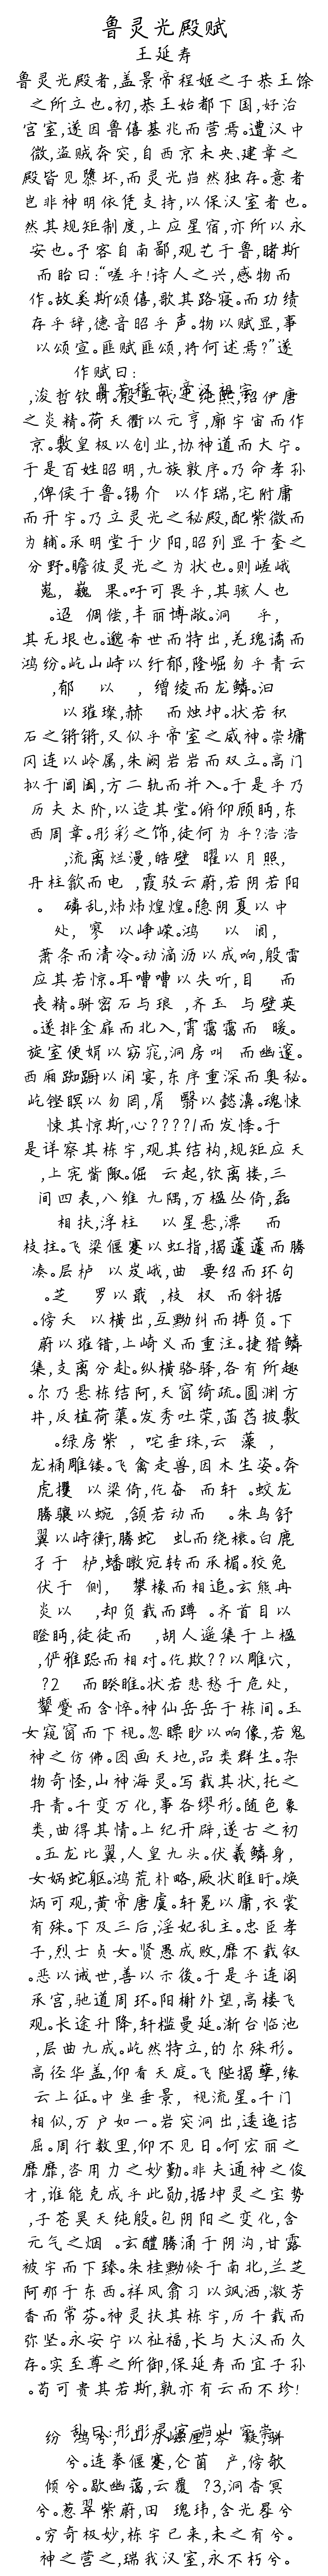 鲁灵光殿赋
王延寿
鲁灵光殿者,盖景帝程姬之子恭王馀
之所立也。初,恭王始都下国,好治
宫室,遂因鲁僖基兆而营焉。遭汉中
微,盗贼奔突,自西京未央、建章之
殿皆见隳坏,而灵光岿然独存。意者
岂非神明依凭支持,以保汉室者也。
然其规矩制度,上应星宿,亦所以永
安也。予客自南鄙,观艺于鲁,睹斯
而眙曰:“嗟乎!诗人之兴,感物而
作。故奚斯颂僖,歌其路寝。而功绩
存乎辞,德音昭乎声。物以赋显,事
以颂宣。匪赋匪颂,将何述焉?”遂
作赋曰:
粤若稽古帝汉祖宗
,浚哲钦明。殷五代之纯熙,绍伊唐
之炎精。荷天衢以元亨,廓宇宙而作
京。敷皇极以创业,协神道而大宁。
于是百姓昭明,九族敦序。乃命孝孙
,俾侯于鲁。锡介 以作瑞,宅附庸
而开宇。乃立灵光之秘殿,配紫微而
为辅。承明堂于少阳,昭列显于奎之
分野。瞻彼灵光之为状也。则嵯峨
嵬, 巍 果。吁可畏乎,其骇人也
。迢 倜傥,丰丽博敞。洞 乎,
其无垠也。邈希世而特出,羌瑰谲而
鸿纷。屹山峙以纡郁,隆崛岉乎青云
,郁 以 , 缯绫而龙鳞。汩
以璀璨,赫 而烛坤。状若积
石之锵锵,又似乎帝室之威神。崇墉
冈连以岭属,朱阙岩岩而双立。高门
拟于阊阖,方二轨而并入。于是乎乃
历夫太阶,以造其堂。俯仰顾眄,东
西周章。彤彩之饰,徒何为乎?浩浩
,流离烂漫,皓壁 曜以月照,
丹柱歙而电 ,霞驳云蔚,若阴若阳
。 磷乱,炜炜煌煌。隐阴夏以中
处, 寥 以峥嵘。鸿 以 阆,
萧条而清冷。动滴沥以成响,殷雷
应其若惊。耳嘈嘈以失听,目 而
丧精。骈密石与琅 ,齐玉 与璧英
。遂排金扉而北入,霄霭霭而 暧。
旋室便娟以窈窕,洞房叫 而幽邃。
西厢踟蹰以闲宴,东序重深而奥秘。
屹铿瞑以勿罔,屑 翳以懿濞。魂悚
悚其惊斯,心????l而发悸。于
是详察其栋宇,观其结构,规矩应天
,上宪觜陬。倔 云起,钦离搂,三
间四表,八维 九隅,万楹丛倚,磊
相扶,浮柱 以星悬,漂 而
枝拄。飞梁偃蹇以虹指,揭蘧蘧而腾
凑。层栌 以岌峨,曲 要绍而环句
。芝 罗以戢 ,枝 杈 而斜据
。傍夭 以横出,互黝纠而搏负。下
蔚以璀错,上崎义而重注。捷猎鳞
集,支离分赴。纵横骆驿,各有所趣
。尔乃悬栋结阿,天窗绮疏。圆渊方
井,反植荷蕖。发秀吐荣,菡萏披敷
。绿房紫 , 咤垂珠,云 藻 ,
龙桷雕镂。飞禽走兽,因木生姿。奔
虎攫 以梁倚,仡奋 而轩 。蛟龙
腾骧以蜿 ,颔若动而 。朱鸟舒
翼以峙衡,腾蛇 虬而绕榱。白鹿
孑于 栌,蟠螭宛转而承楣。狡兔
伏于 侧, 攀椽而相追。玄熊冉
炎以 ,却负载而蹲 。齐首目以
瞪眄,徒徒而 ,胡人遥集于上楹
,俨雅跽而相对。仡欺??以雕穴,
?2 而睽睢。状若悲愁于危处,
颦蹙而含悴。神仙岳岳于栋间。玉
女窥窗而下视。忽瞟眇以响像,若鬼
神之仿佛。图画天地,品类群生。杂
物奇怪,山神海灵。写载其状,托之
丹青。千变万化,事各缪形。随色象
类,曲得其情。上纪开辟,遂古之初
。五龙比翼,人皇九头。伏羲鳞身,
女娲蛇躯。鸿荒朴略,厥状睢盱。焕
炳可观,黄帝唐虞。轩冕以庸,衣裳
有殊。下及三后,淫妃乱主。忠臣孝
子,烈士贞女。贤愚成败,靡不载叙
。恶以诫世,善以示後。于是乎连阁
承宫,驰道周环。阳榭外望,高楼飞
观。长途升降,轩槛曼延。渐台临池
,层曲九成。屹然特立,的尔殊形。
高径华盖,仰看天庭。飞陛揭孽,缘
云上征。中坐垂景, 视流星。千门
相似,万户如一。岩突洞出,逶迤诘
屈。周行数里,仰不见日。何宏丽之
靡靡,咨用力之妙勤。非夫通神之俊
才,谁能克成乎此勋,据坤灵之宝势
,子苍昊天纯殷。包阴阳之变化,含
元气之烟 。玄醴腾涌于阴沟,甘露
被宇而下臻。朱桂黝倏于南北,兰芝
阿那于东西。祥风翕习以飒洒,激芳
香而常芬。神灵扶其栋宇,历千载而
弥坚。永安宁以祉福,长与大汉而久
存。实至尊之所御,保延寿而宜子孙
。苟可贵其若斯,孰亦有云而不珍!
乱曰:彤彤灵宫,岿山穹崇
纷 鸿兮, 山力嵫厘,岑 嶷,骈
兮。连拳偃蹇,仑菌 产,傍欹
倾兮。歇幽蔼,云覆 ?3,洞杳冥
兮。葱翠紫蔚,田 瑰玮,含光晷兮
。穷奇极妙,栋宇已来,未之有兮。
神之营之,瑞我汉室,永不朽兮。